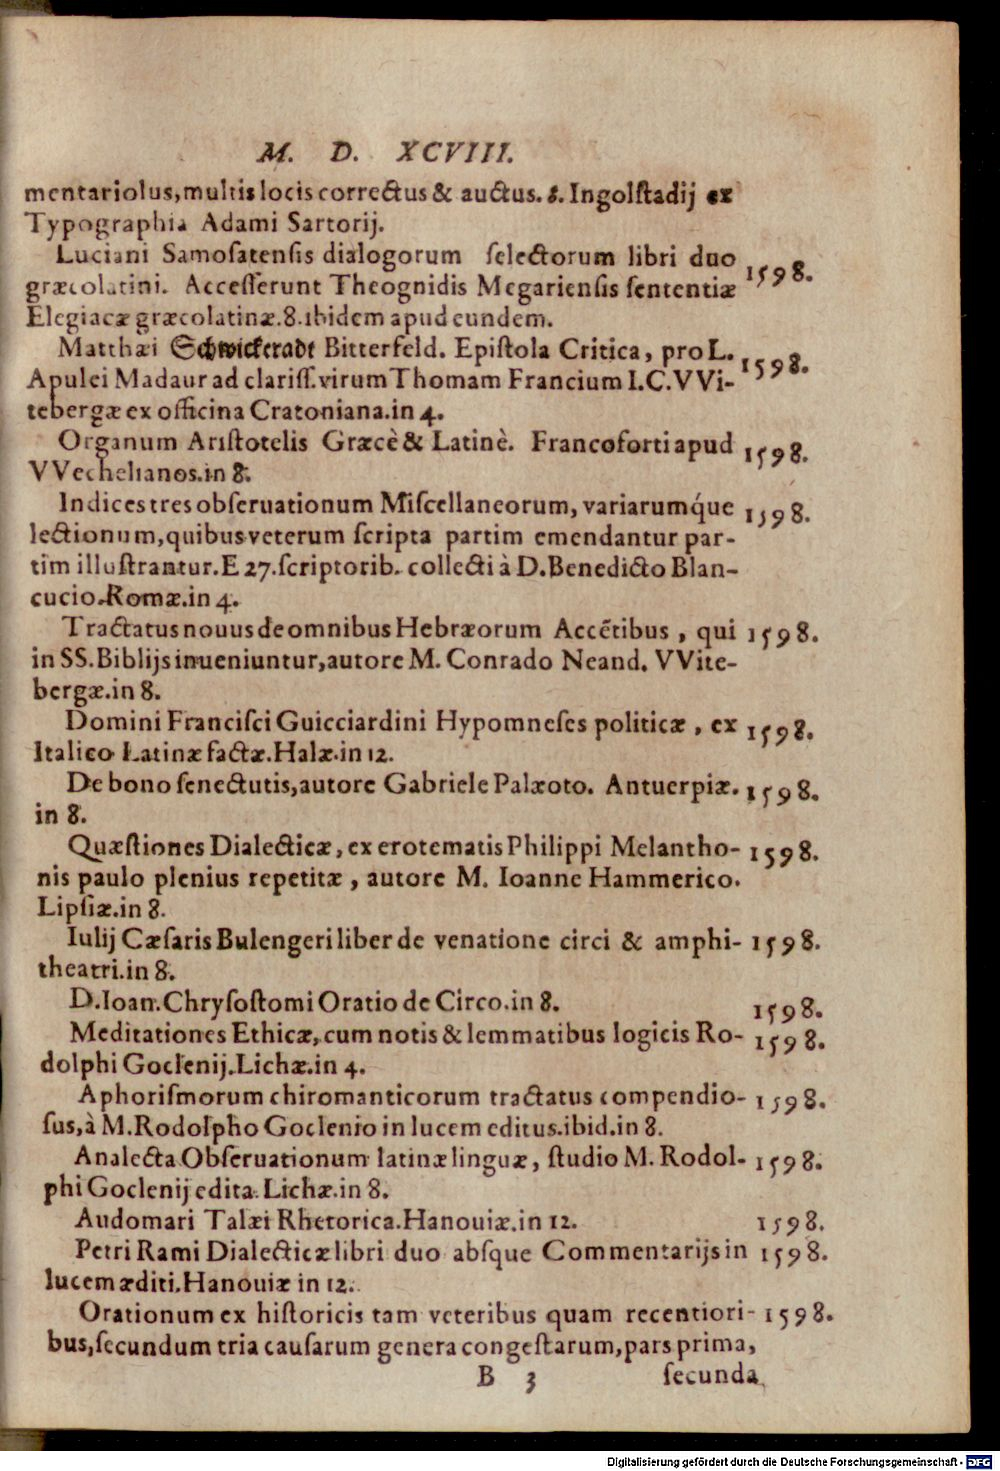 M. D. XCVIII.
mentariolus, multis locis correctus & auctus. 8. Ingolſtadij ex
Typographia Adami Sartorij.
Luciani Samoſatenſis dialogorum ſelectorum libri duo 1598.
græcolatini. Acceſſerunt Theognidis Megarienſis ſententiæ
Elegiacæ græcolatinæ. 8. ibidem apud eundem.
Matthæi Schwickeradt Bitterfeld. Epiſtola Critica, pro L. 1598.
Apulei Madaur ad clariſſ. virum Thomam Francium I. C. VVi-
tebergæ ex officina Cratoniana. in 4.
Organum Ariſtotelis Græcè & Latinè. Francoforti apud 1598.
VVechelianos. in 8.
Indices tres obſeruationum Miſcellaneorum, variarumq́ue 1598.
lectionum, quibus veterum ſcripta partim emendantur par-
tim illuſtrantur. E 27. ſcriptorib. collecti à D. Benedicto Blan-
cucio. Romæ. in 4.
Tractatus nouus de omnibus Hebræorum Accẽtibus, qui 1598.
in SS. Biblijs inueniuntur, autore M. Conrado Neand. VVite-
bergæ. in 8.
Domini Franciſci Guicciardini Hypomneſes politicæ, ex 1598.
Italico Latinæ factæ. Halæ. in 12.
De bono ſenectutis, autore Gabriele Palæoto. Antuerpiæ. 1598.
in 8.
Quæſtiones Dialecticæ, ex erotematis Philippi Melantho- 1598.
nis paulo plenius repetitæ, autore M. Ioanne Hammerico.
Lipſiæ. in 8.
Iulij Cæſaris Bulengeri liber de venatione circi & amphi- 1598.
theatri. in 8.
D. Ioan. Chryſoſtomi Oratio de Circo. in 8. 1598.
Meditationes Ethicæ, cum notis & lemmatibus logicis Ro- 1598.
dolphi Goclenij. Lichæ. in 4.
Aphoriſmorum chiromanticorum tractatus compendio- 1598.
ſus, à M. Rodolpho Goclenio in lucem editus. ibid. in 8.
Analecta Obſeruationum latinæ linguæ, ſtudio M. Rodol- 1598.
phi Goclenij edita. Lichæ. in 8.
Audomari Talæi Rhetorica. Hanouiæ. in 12. 1598.
Petri Rami Dialecticæ libri duo abſque Commentarijs in 1598.
lucem æditi. Hanouiæ in 12.
Orationum ex hiſtoricis tam veteribus quam recentiori- 1598.
bus, ſecundum tria cauſarum genera congeſtarum, pars prima,
B 3 ſecunda
Digitalisierung gefördert durch die Deutsche Forschungsgemeinschaft - DFG